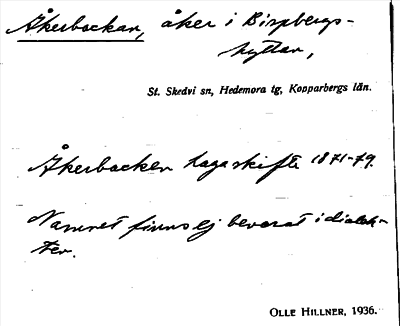 Åkerbackan, åker i Bispbergs-
hyttan,
St. Skedvi sn, Hedemora tg, Kopparbergs län.
Åkerbacken laga skifte 1871-79.
Namnet finns ej bevarat i dialek-
ten.
OLLE HILLNER, 1936.